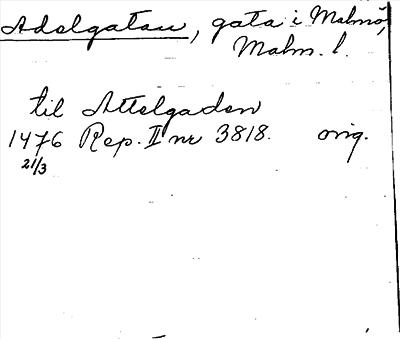 Adelgatan, gata i Malmö,
Malm. l.
til Attelgaden
1476 Rep. II nr 3818. orig.
21/3